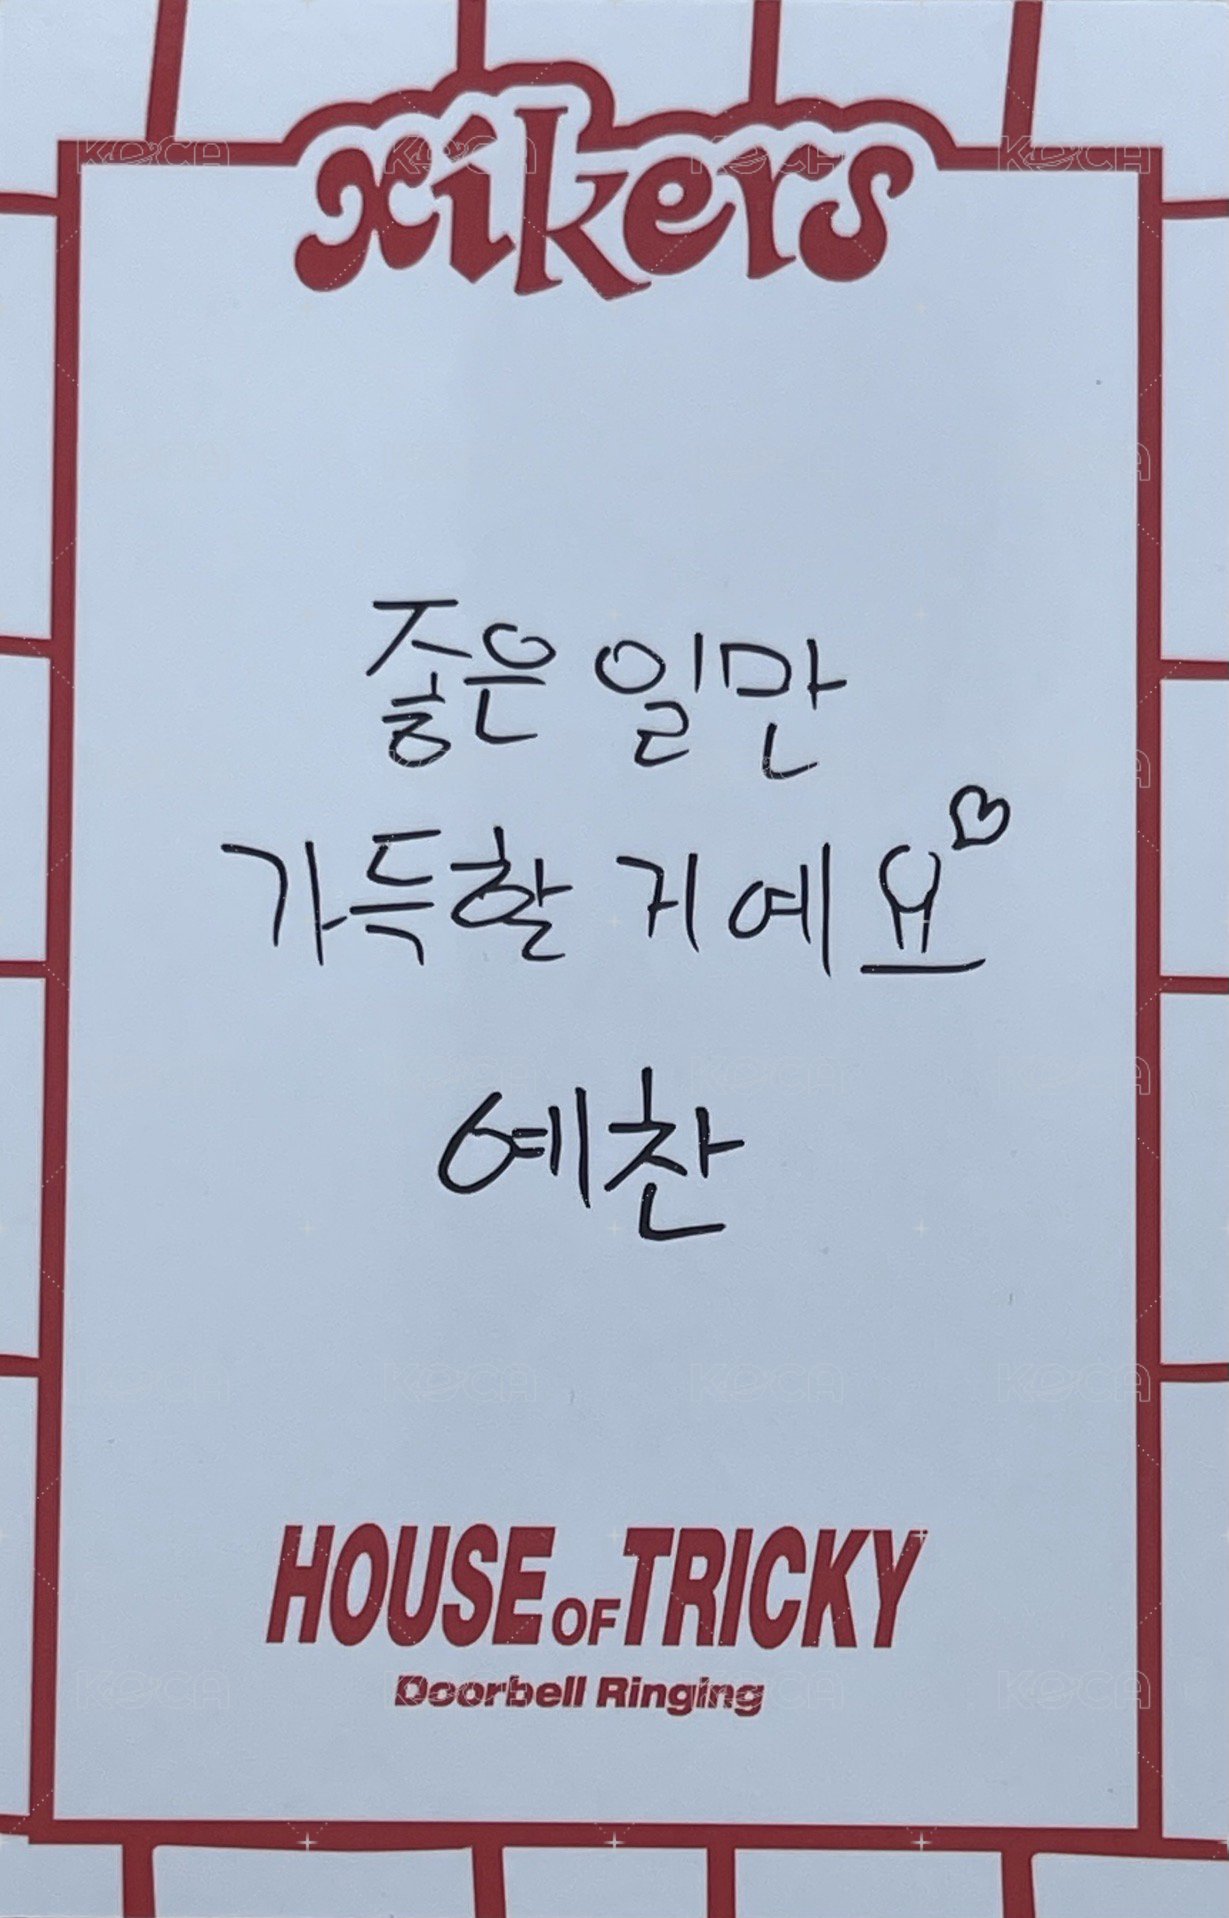 xikers
좋은 일만
가득할 거예요♡
예찬
HOUSE OF TRICKY
Doorbell Ringing
KOCA